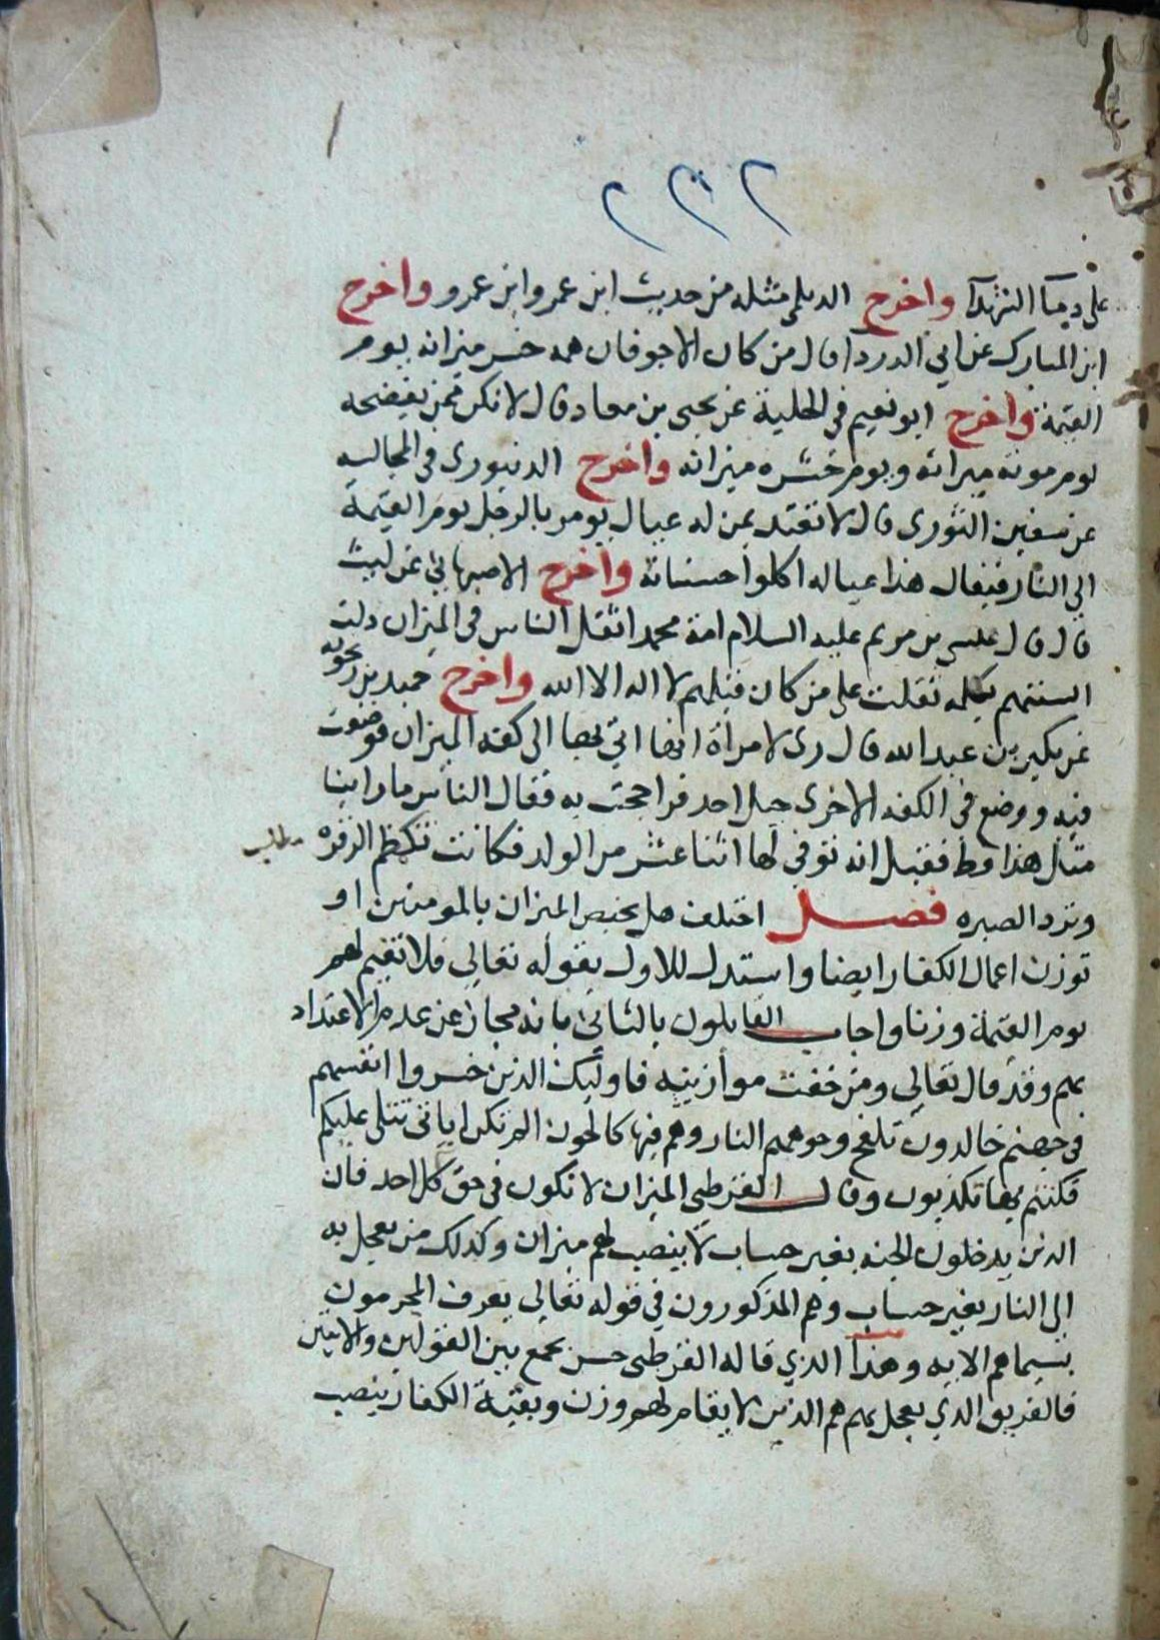 ٢٣٢
على دما الشهدآ واخرج الديلمى مثله من حديث ابن عمر وابن عمرو واخرج
ابن المبارك عن ابي الدردا قال من كان الاجوفان همه خسر ميزانه يوم
القيمة واخرج ابو نعيم في الحلية عن يحيى بن معاد قال لا تكن ممن يفضحه
يوم موته ميراثه ويوم حشره ميزانه واخرج الدينورى فى المجالسه
عن سفين الثورى قال لا تعتد بمن له عيال يومر بالرجل يوم القيمة
الي النار فيقال هذا عياله اكلوا حسناته واخرج الاصبهاني عن ليث
قال قال عيسى بن مريم عليه السلام امة محمد اثقل الناس فى الميزان دلت
السنتهم بكلمه ثقلت على من كان قبلهم لا اله الا الله واخرج حميد بن زنجويه
عن بكير بن عبد الله قال رى لامراة انها اتي بها الى كفه الميزان فوضعت
فيه ووضع فى الكفه الاخرى جبل احد فراجحت به فقال الناس ما راينا
مثل هذا قط فقيل انه توفي لها اثنا عشر من الولد فكانت تكظم الزفره
مطلب
وترد الصبره فصل اختلف هل يختص الميزان بالمومنين او
توزن اعمال الكفار ايضا واستدل للاول بقوله تعالي فلا نقيم لهم
يوم القيمة وزنا واجاب القايلون بالثانى بانه مجاز عن عدم الاعتداد
بهم وقد قال تعالي ومن خفت موازينه فاوليك الذين خسروا انفسهم
فى جهنم خالدون تلفح وجوههم النار وهم فيها كالحون الم تكن اياتى تتلى عليكم
فكنتم بها تكذبون وقال القرطبى الميزان لا تكون فى حق كل احد فان
الذين يدخلون الجنه بغير حساب لا ينصب لهم ميزان وكذلك من يعجل به
الى النار بغير حساب وهم المذكورون في قوله تعالي يعرف المجرمون
بسيماهم الايه وهذا الذي قاله القرطبى حسن يجمع بين القولين والايتين
فالفريق الذي يعجل بهم هم الذين لا يقام لهم وزن وبقية الكفار ينصب